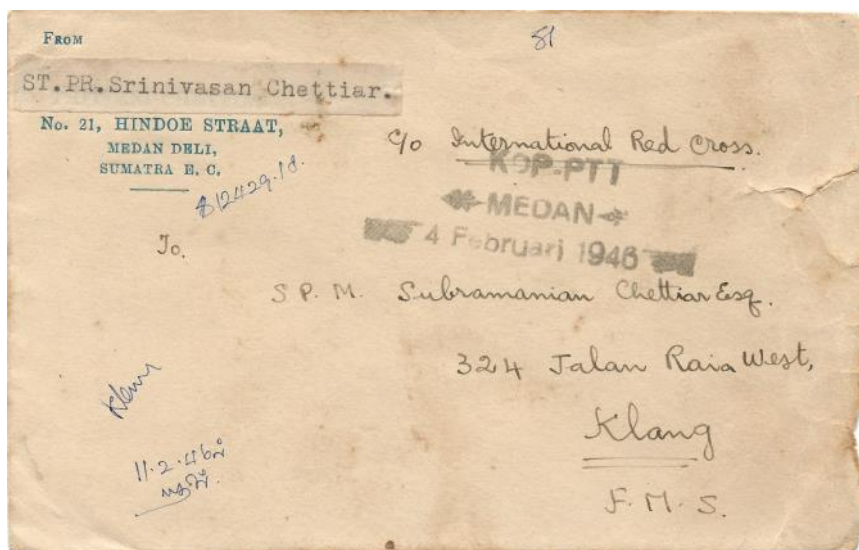 FROM
ST.PR.Srinivasan Chettiar.
No. 21, HINDOE STRAAT,
MEDAN DELI,
SUMATRA E. C.
81
C/o International Red Cross.
KOP-PTT
MEDAN
4 Februari 1946
To.
S P. M. Subramanian Chettiar Esq.
324 Jalan Raia West,
Klang
F. M. S.
11.2.46